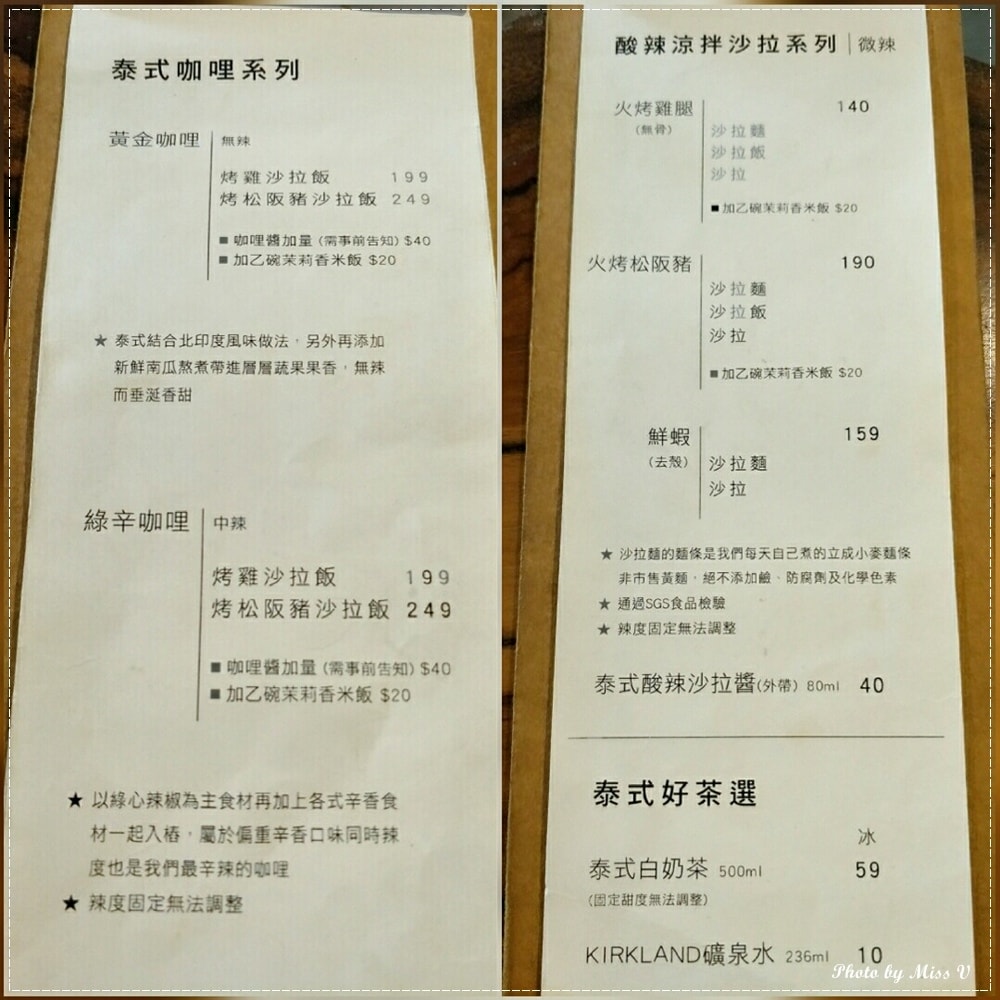 泰式咖哩系列
黃金咖哩 無辣
烤雞沙拉飯 199
烤松阪豬沙拉飯 249
■ 咖哩醬加量 (需事前告知) $40
■ 加乙碗茉莉香米飯 $20
★ 泰式結合北印度風味做法，另外再添加
新鮮南瓜熬煮帶進層層蔬果果香，無辣
而垂涎香甜
綠辛咖哩 中辣
烤雞沙拉飯 199
烤松阪豬沙拉飯 249
■ 咖哩醬加量 (需事前告知) $40
■ 加乙碗茉莉香米飯 $20
★ 以綠心辣椒為主食材再加上各式辛香食
材一起入樁，屬於偏重辛香口味同時辣
度也是我們最辛辣的咖哩
★ 辣度固定無法調整
酸辣涼拌沙拉系列 | 微辣
火烤雞腿 140
(無骨) 沙拉麵
沙拉飯
沙拉
■ 加乙碗茉莉香米飯 $20
火烤松阪豬 190
沙拉麵
沙拉飯
沙拉
■ 加乙碗茉莉香米飯 $20
鮮蝦 159
(去殼) 沙拉麵
沙拉
★ 沙拉麵的麵條是我們每天自己煮的立成小麥麵條
非市售黃麵，絕不添加鹼、防腐劑及化學色素
★ 通過SGS食品檢驗
★ 辣度固定無法調整
泰式酸辣沙拉醬(外帶) 80ml 40
泰式好茶選
冰
泰式白奶茶 500ml 59
(固定甜度無法調整)
KIRKLAND礦泉水 236ml 10
Photo by Miss V